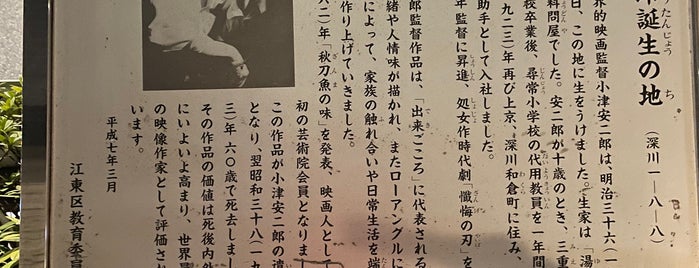 誕生の地
たんじょう ち
(深川一ー八ー八)
界的映画監督小津安二郎は、明治三十六(一
日、この地に生をうけました。生家は「湯
料問屋でした。安二郎が十歳のとき、三重
校卒業後、尋常小学校の代用教員を一年間
九二三)年再び上京、深川和倉町に住み、
助手として入社しました。
年監督に昇進、処女作時代劇「懺悔の刃」を
郎監督作品は、「出来ごころ」に代表される
緒や人情味が描かれ、またローアングルに
によって、家族の触れ合いや日常生活を端
作り上げていきました。
六二)年「秋刀魚の味」を発表、映画人として
初の芸術院会員となりま
この作品が小津安二郎の遺
となり、翌昭和三十八(一九
三)年六〇歳で死去しまし
その作品の価値は死後内外
にいよいよ高まり、世界
の映像作家として評価さ
います。
平成七年三月
江東区教育委員